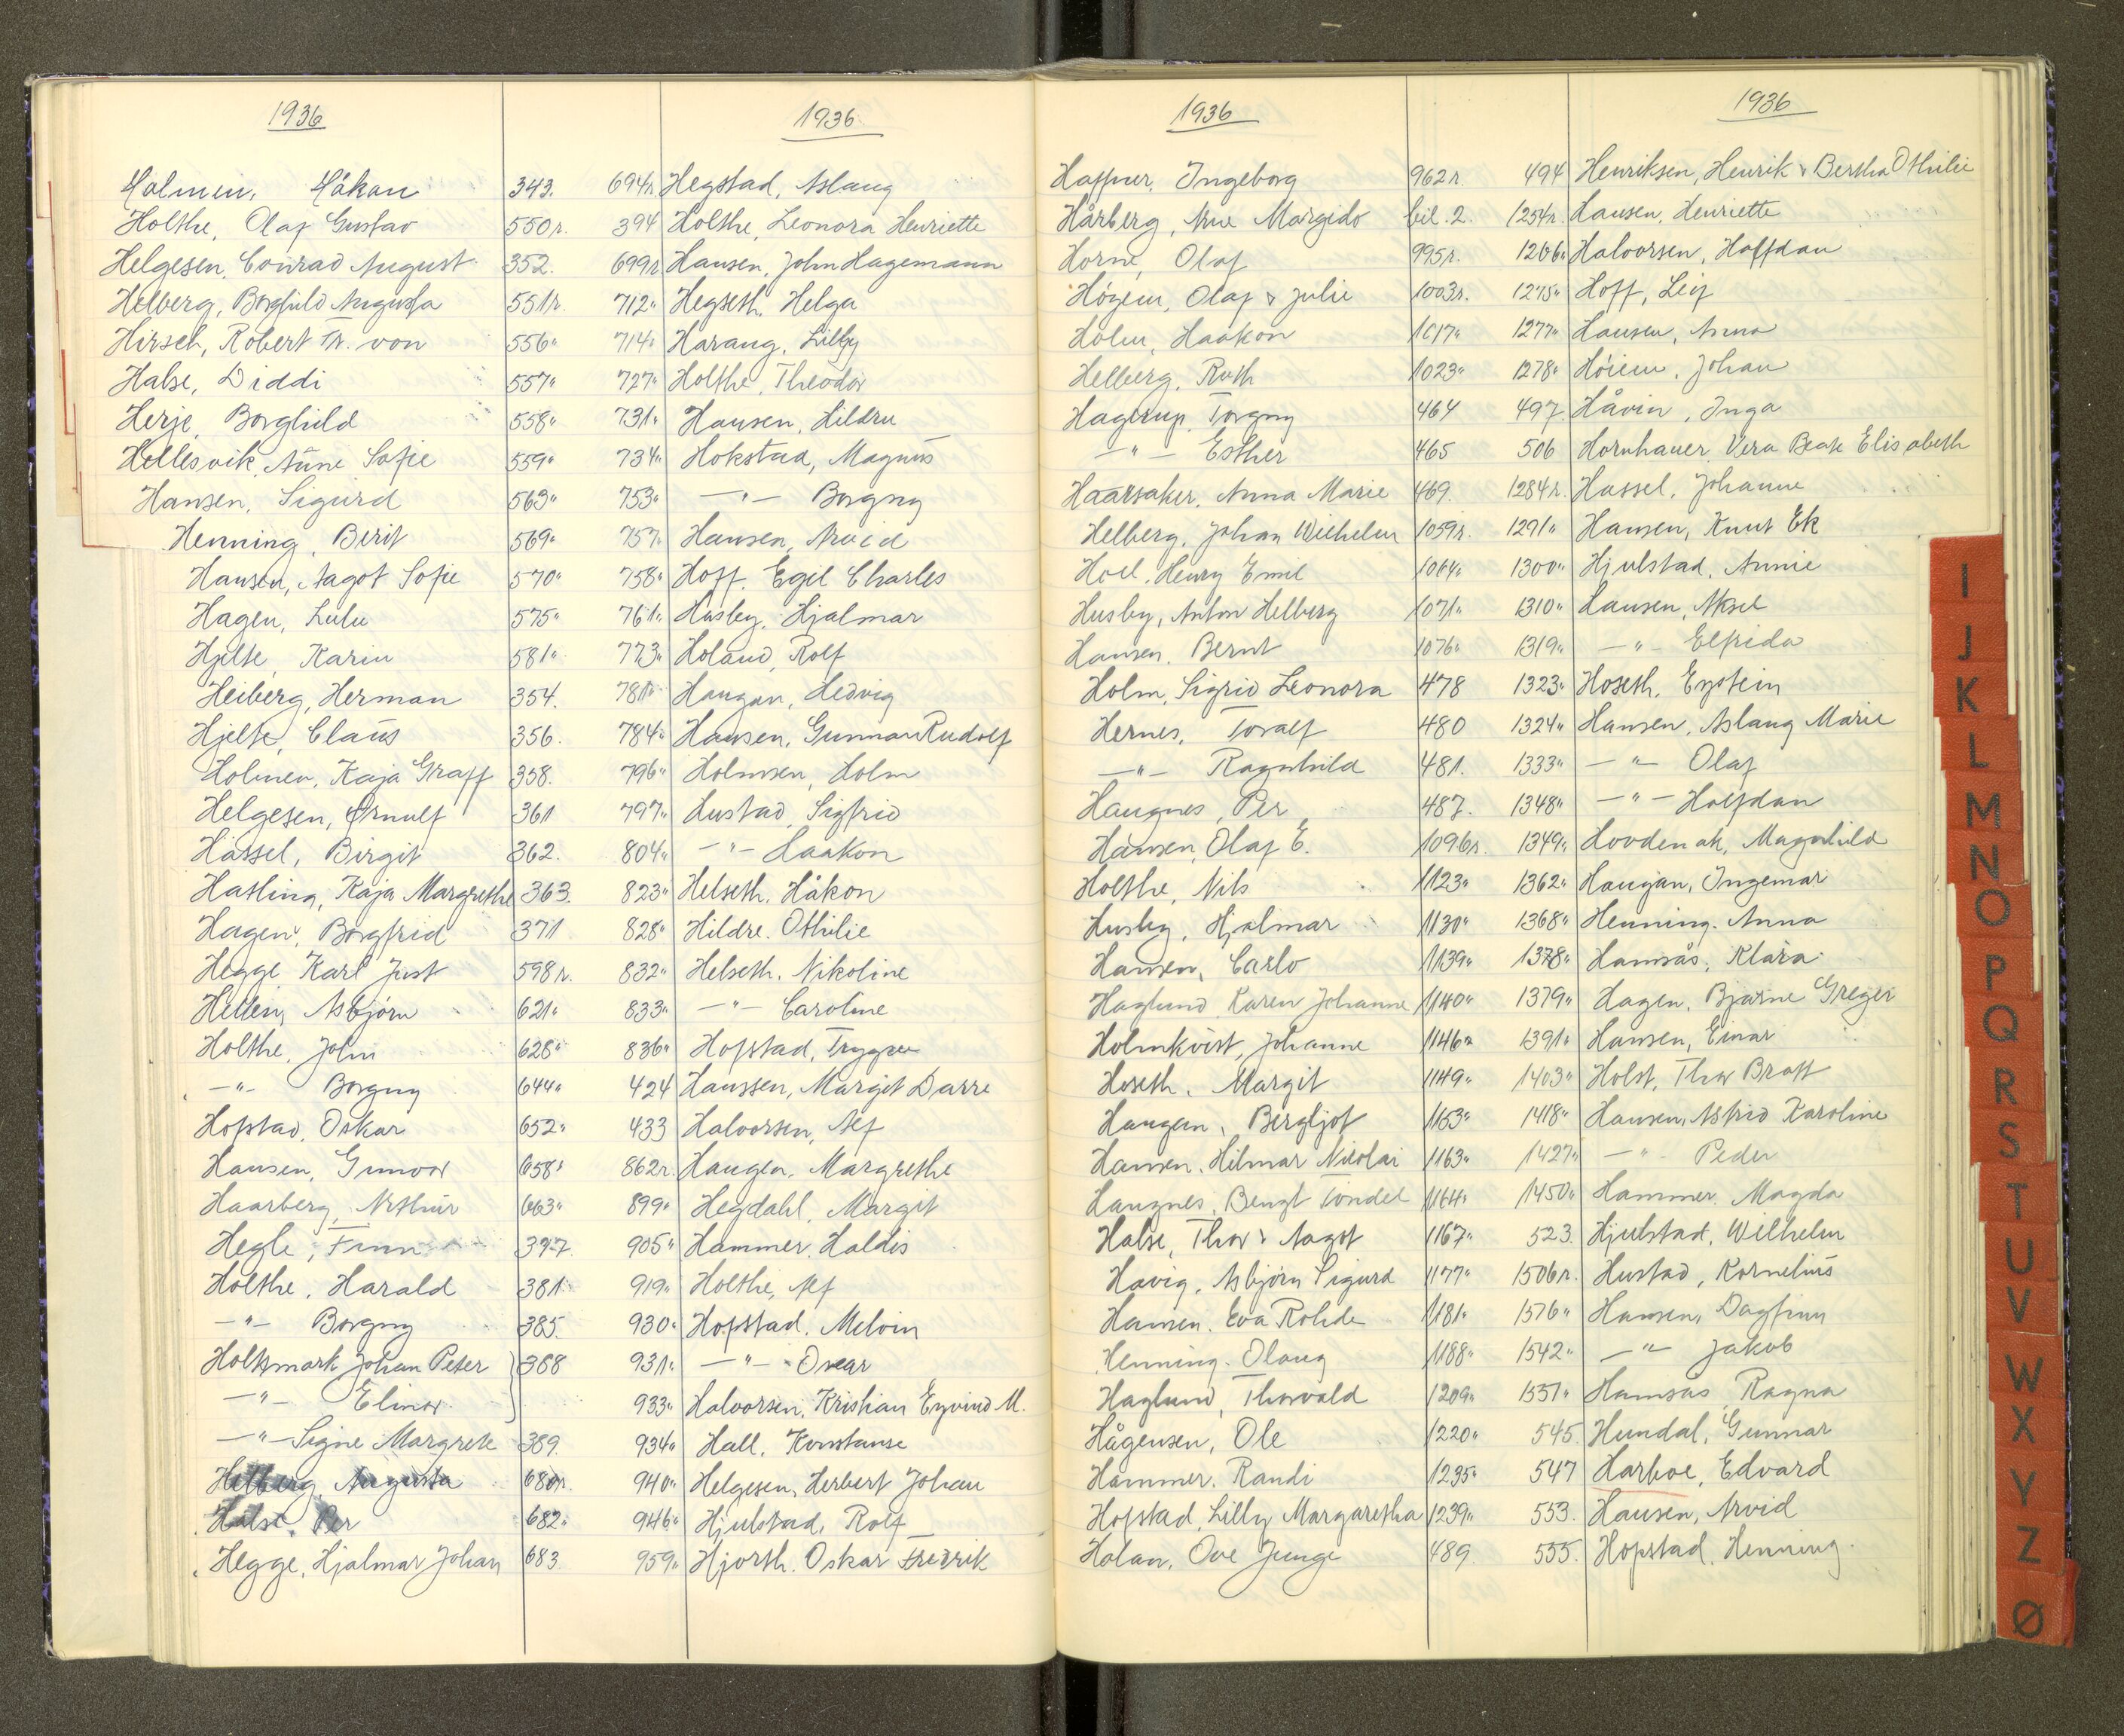 1936
Holmen, Håkan 343.
Holthe, Olaf Gustav 550r.
Helgesen, Conrad August 352.
Helberg, Borghild Augusta 551r.
Hirsch, Robert Fr. von 556"
Halse, Diddi 557"
Herje, Borghild 558"
Hellesvik, Anne Sofie 559"
Hansen, Sigurd 563"
Henning, Berit 569"
Hansen, Aagot Sofie 570"
Hagen, Lulu 575"
Hjelte, Karin 581"
Heiberg, Herman 354.
Hjelte, Claus 356.
Holmen, Kaja Graff 358.
Helgesen, Ørnulf 361
Hassel, Birgit 362.
Hatling, Kaja Margrethe 363.
Hagen, Borgfrid 371
Hegge, Karl Just 598r.
Hellem, Asbjørn 621"
Holthe, John 628"
—"— Borgny 644"
Hofstad, Oskar 652"
Hansen, Gunvor 658"
Haarberg, Arthur 663"
Hegle, Finn 377.
Holthe, Harald 381
—"— Borgny 385.
Holtsmark Johan Peter } 388
—"— Elinor
—"— Signe Margrete 389.
Helberg, Augusta 680r.
Halse, Per 682"
Hegge, Hjalmar Johan 683
1936
694r. Hegstad, Aslaug
394 Holthe, Leonora Henriette
699r Hansen, John Hagemann
712" Hegseth, Helga
714" Harang, Lilly
727" Holthe, Theodor
731" Hansen, Hildru
734" Hokstad, Magnus
753" —"— Borgny
757" Hansen, Arvid
758" Hoff, Egil Charles
761" Husby, Hjalmar
773" Holand, Rolf
781" Haugan, Hedvig
784" Hansen, Gunnar Rudolf
796" Holmsen, Holm
797" Hustad, Sigfrid
804" —"— Haakon
823" Helseth, Håkon
828" Hildre, Othilie
832" Helseth, Nikoline
833" —"— Caroline
836" Hofstad, Trygve
424 Hanssen, Margit Darre
433 Halvorsen, Alf
862r. Haugen, Margrethe
899" Hegdahl, Margit
905" Hammer, Haldis
919" Holthe, Alf
930" Hofstad, Melvin
931" —"— Oscar
933" Halvorsen, Kristian Eyvind M.
934" Hall, Konstanse
940" Helgesen, Herbert Johan
946" Hjulstad, Rolf
959" Hjorth, Oskar Fredrik
1936
Haffner, Ingeborg 962r.
Hårberg, Arne Margido bil. 2.
Horne, Olaf 995r.
Høgem, Olaf & Julie 1003r.
Holm, Haakon 1017"
Helberg, Ruth 1023"
Hagerup, Torgny 464
—"— Esther 465
Haarsaker, Anna Marie 469.
Helberg, Johan Wilhelm 1059r.
Hoel, Henry Emil 1064"
Husby, Anton Helberg 1071"
Hansen, Bernt 1076"
Holm, Sigrid Leonora 478
Hernes, Toralf 480
—"— Ragnhild 481.
Haugnes, Per 487.
Hansen, Olaf E. 1096r.
Holthe, Nils 1123"
Husby, Hjalmar 1130"
Hansen, Carlo 1139"
Haglund, Karen Johanne 1140"
Holmkvist, Johanne 1146"
Hoseth, Margit 1149"
Haugan, Bergljot 1153"
Hansen, Hilmar Nikolai 1163"
Haugnes, Bengt Tondel 1164"
Halse, Thor & Aagot 1167"
Havig, Asbjørn Sigurd 1177"
Hansen, Eva Rohde 1181"
Henning, Olaug 1188"
Haglund, Thorvald 1209"
Hågensen, Ole 1220"
Hammer, Randi 1235"
Hofstad, Lilly Margaretha 1239"
Holan, Ove Junge 489.
1936
494 Henriksen, Henrik & Bertha Othilie
1254r. Hansen, Henriette
1266" Halvorsen, Halfdan
1275" Hoff, Leif
1277" Hansen, Anna
1278" Høiem, Johan
497. Håvin, Inga
506 Hornhauer, Vera Beate Elisabeth
1284r. Hassel, Johanne
1291" Hansen, Knut Ek
1300" Hjulstad, Annie
1310" Hansen, Aksel
1319" —"— Elfrida
1323" Hoseth, Eystein
1324" Hansen, Aslaug Marie
1333" —"— Olaf
1348" —"— Halfdan
1349" Hovdenak, Magnhild
1362" Haugan, Ingemar
1368" Henning, Anna
1378" Hamsås, Klara
1379" Hagen, Bjarne Greger
1391" Hansen, Einar
1403" Holst, Thor Bratt
1418" Hansen, Astrid Karoline
1427" —"— Peder
1450" Hammer, Magda
523. Hjulstad, Wilhelm
1506r. Hustad, Kornelius
1576" Hansen, Dagfinn
1542" —"— Jakob
1551" Hamsås, Ragna
545 Hundal, Gunnar
547 Harboe, Edvard
553. Hansen, Arvid
555. Hopstad, Henning.
I
J
K
L
M
N
O
P
Q
R
S
T
U
V
W
X
Y
Z
Ø